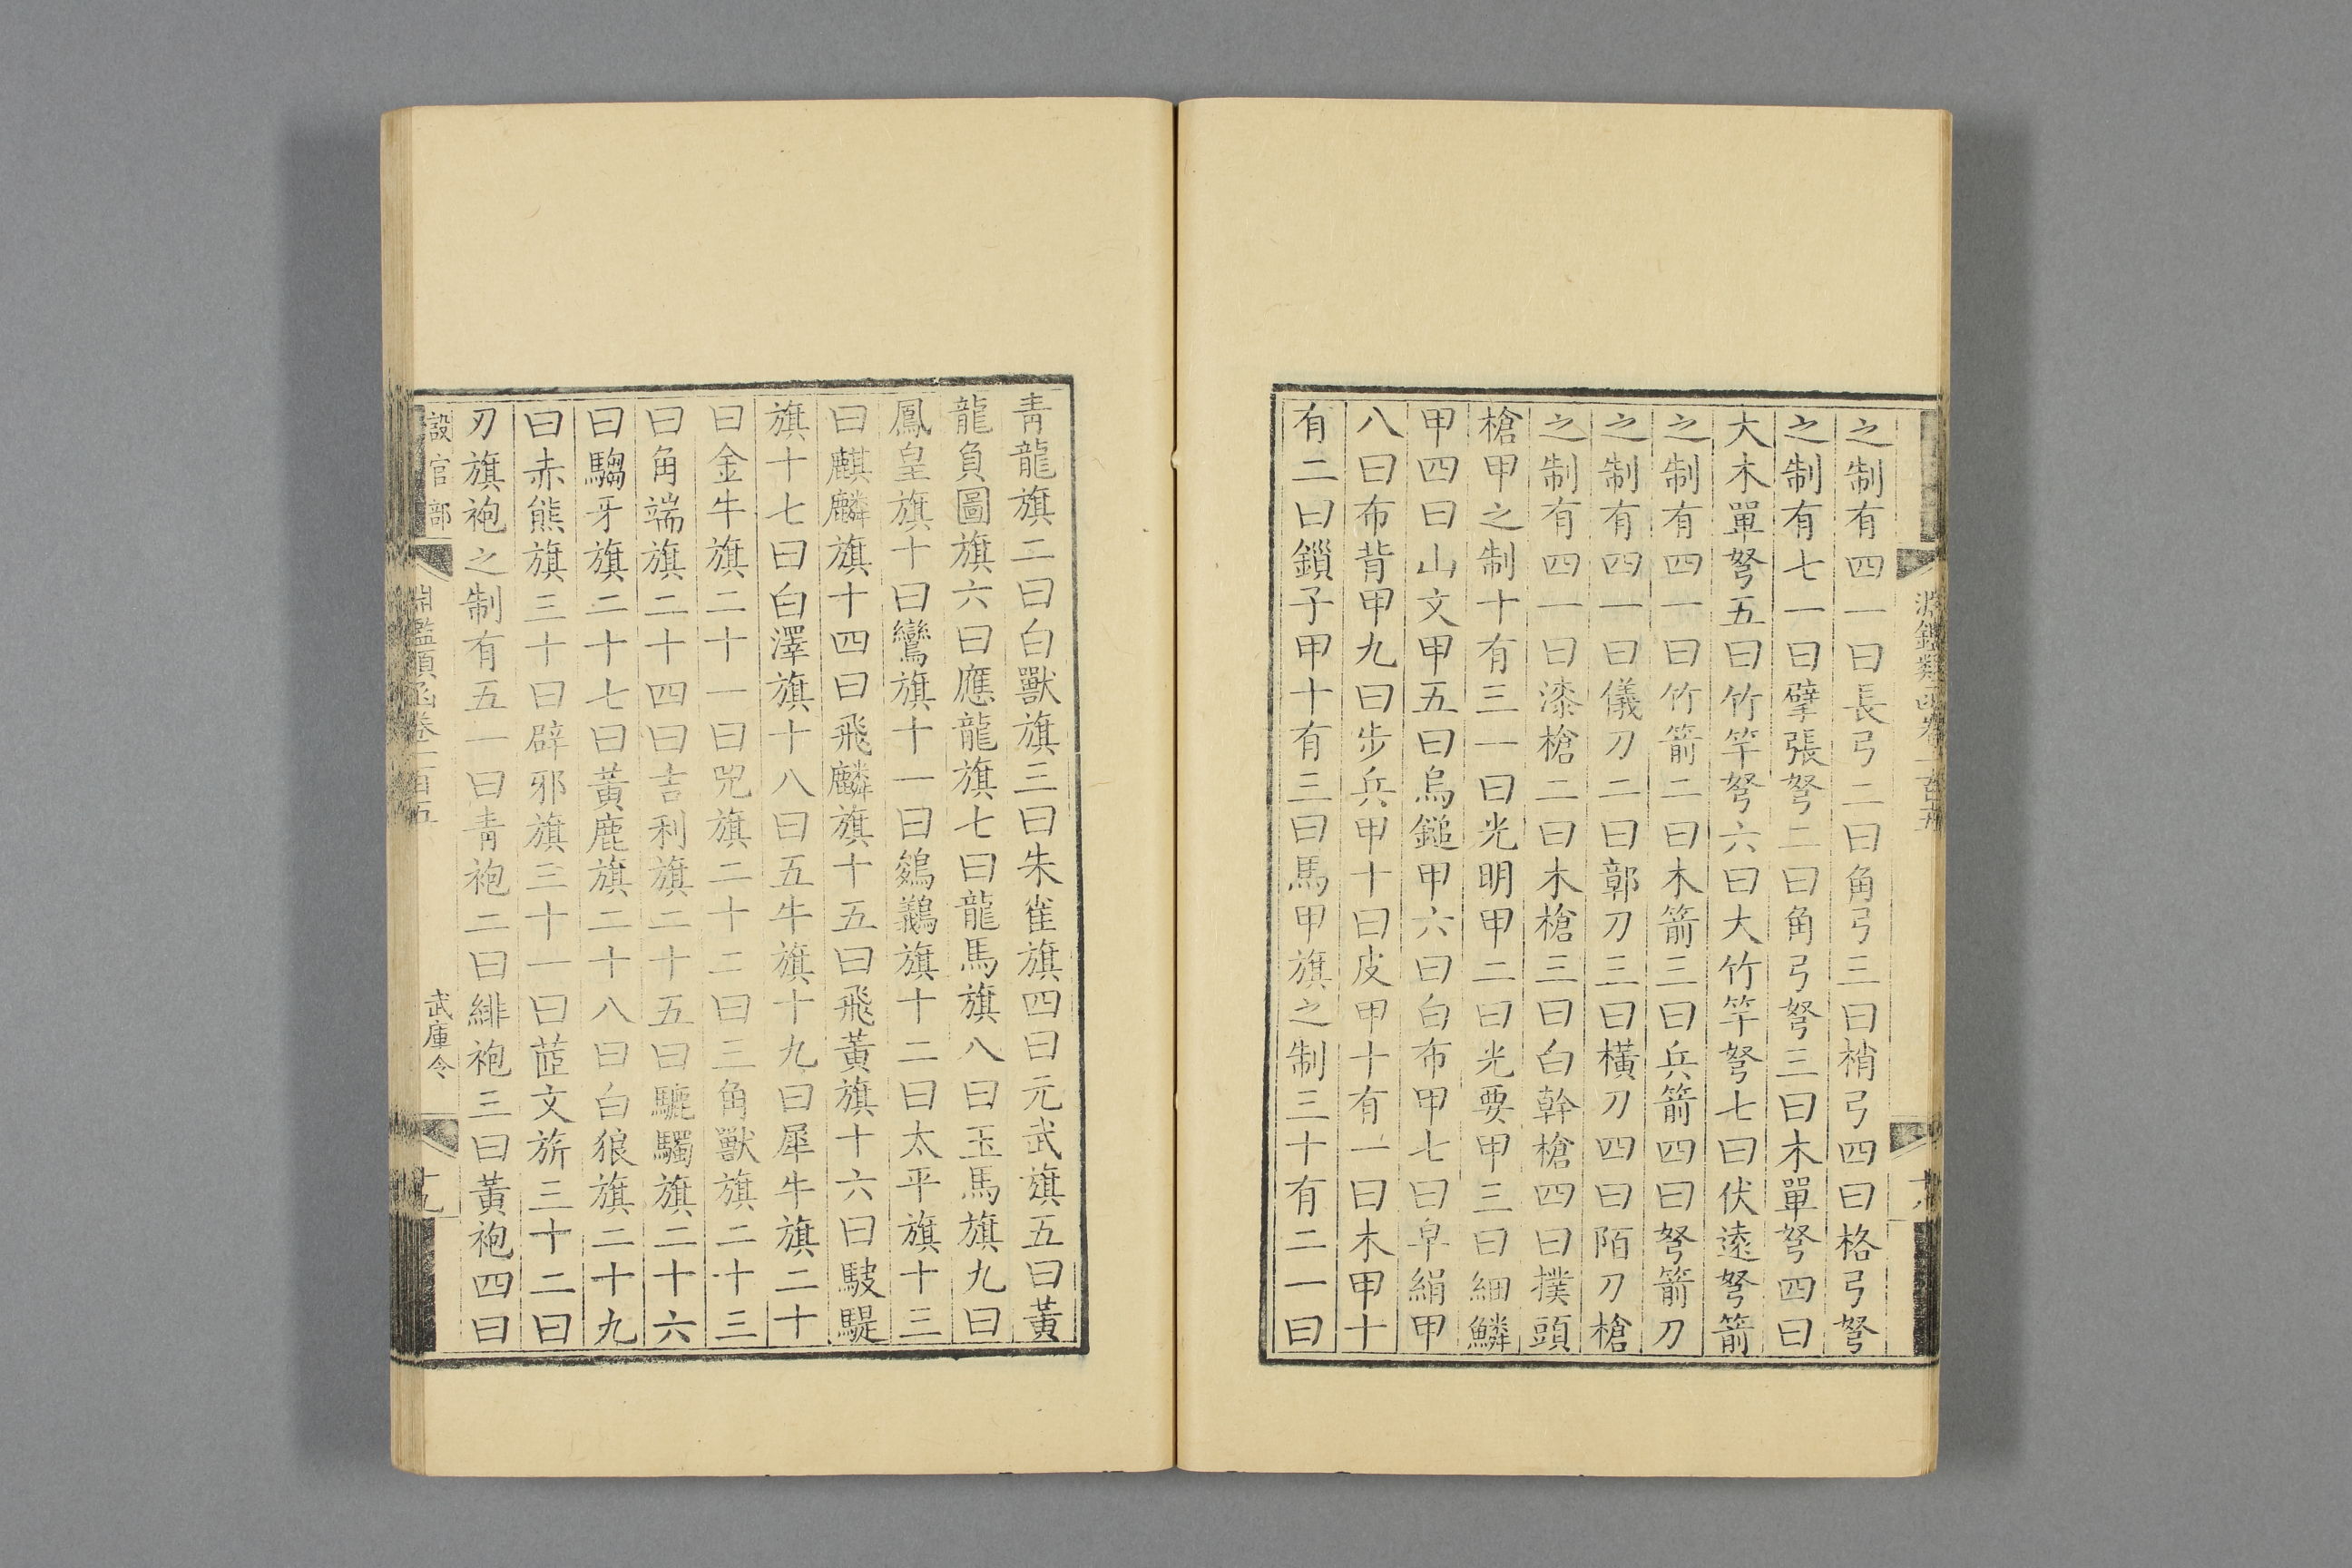 之制有四一曰長弓二曰角弓三曰梢弓四曰格弓弩
之制有七一曰擘張弩二曰角弓弩三曰木單弩四曰
大木單弩五曰竹竿弩六曰大竹竿弩七曰伏遠弩箭
之制有四一曰竹箭二曰木箭三曰兵箭四曰弩箭刀
之制有四一曰儀刀二曰鄣刀三曰橫刀四曰陌刀槍
之制有四一曰漆槍二曰木槍三曰白幹槍四曰撲頭
槍甲之制十有三一曰光明甲二曰光要甲三曰細鱗
甲四曰山文甲五曰烏鎚甲六曰白布甲七曰皁絹甲
八曰布背甲九曰步兵甲十曰皮甲十有一曰木甲十
有二曰鎖子甲十有三曰馬甲旗之制三十有二一曰
青龍旗二曰白獸旗三曰朱雀旗四曰元武旗五曰黃
龍負圖旗六曰應龍旗七曰龍馬旗八曰玉馬旗九曰
鳳皇旗十曰鸞旗十一曰鵕鸃旗十二曰太平旗十三
曰麒麟旗十四曰飛麟旗十五曰飛黃旗十六曰駃騠
旗十七曰白澤旗十八曰五牛旗十九曰犀牛旗二十
曰金牛旗二十一曰兕旗二十二曰三角獸旗二十三
曰角端旗二十四曰吉利旗二十五曰騼䮷旗二十六
曰騶牙旗二十七曰黃鹿旗二十八曰白狼旗二十九
曰赤熊旗三十曰辟邪旗三十一曰苣文旂三十二曰
刃旗袍之制有五一曰青袍二曰緋袍三曰黃袍四曰
設官部
淵鑑類函卷一百五
武庫令
十九